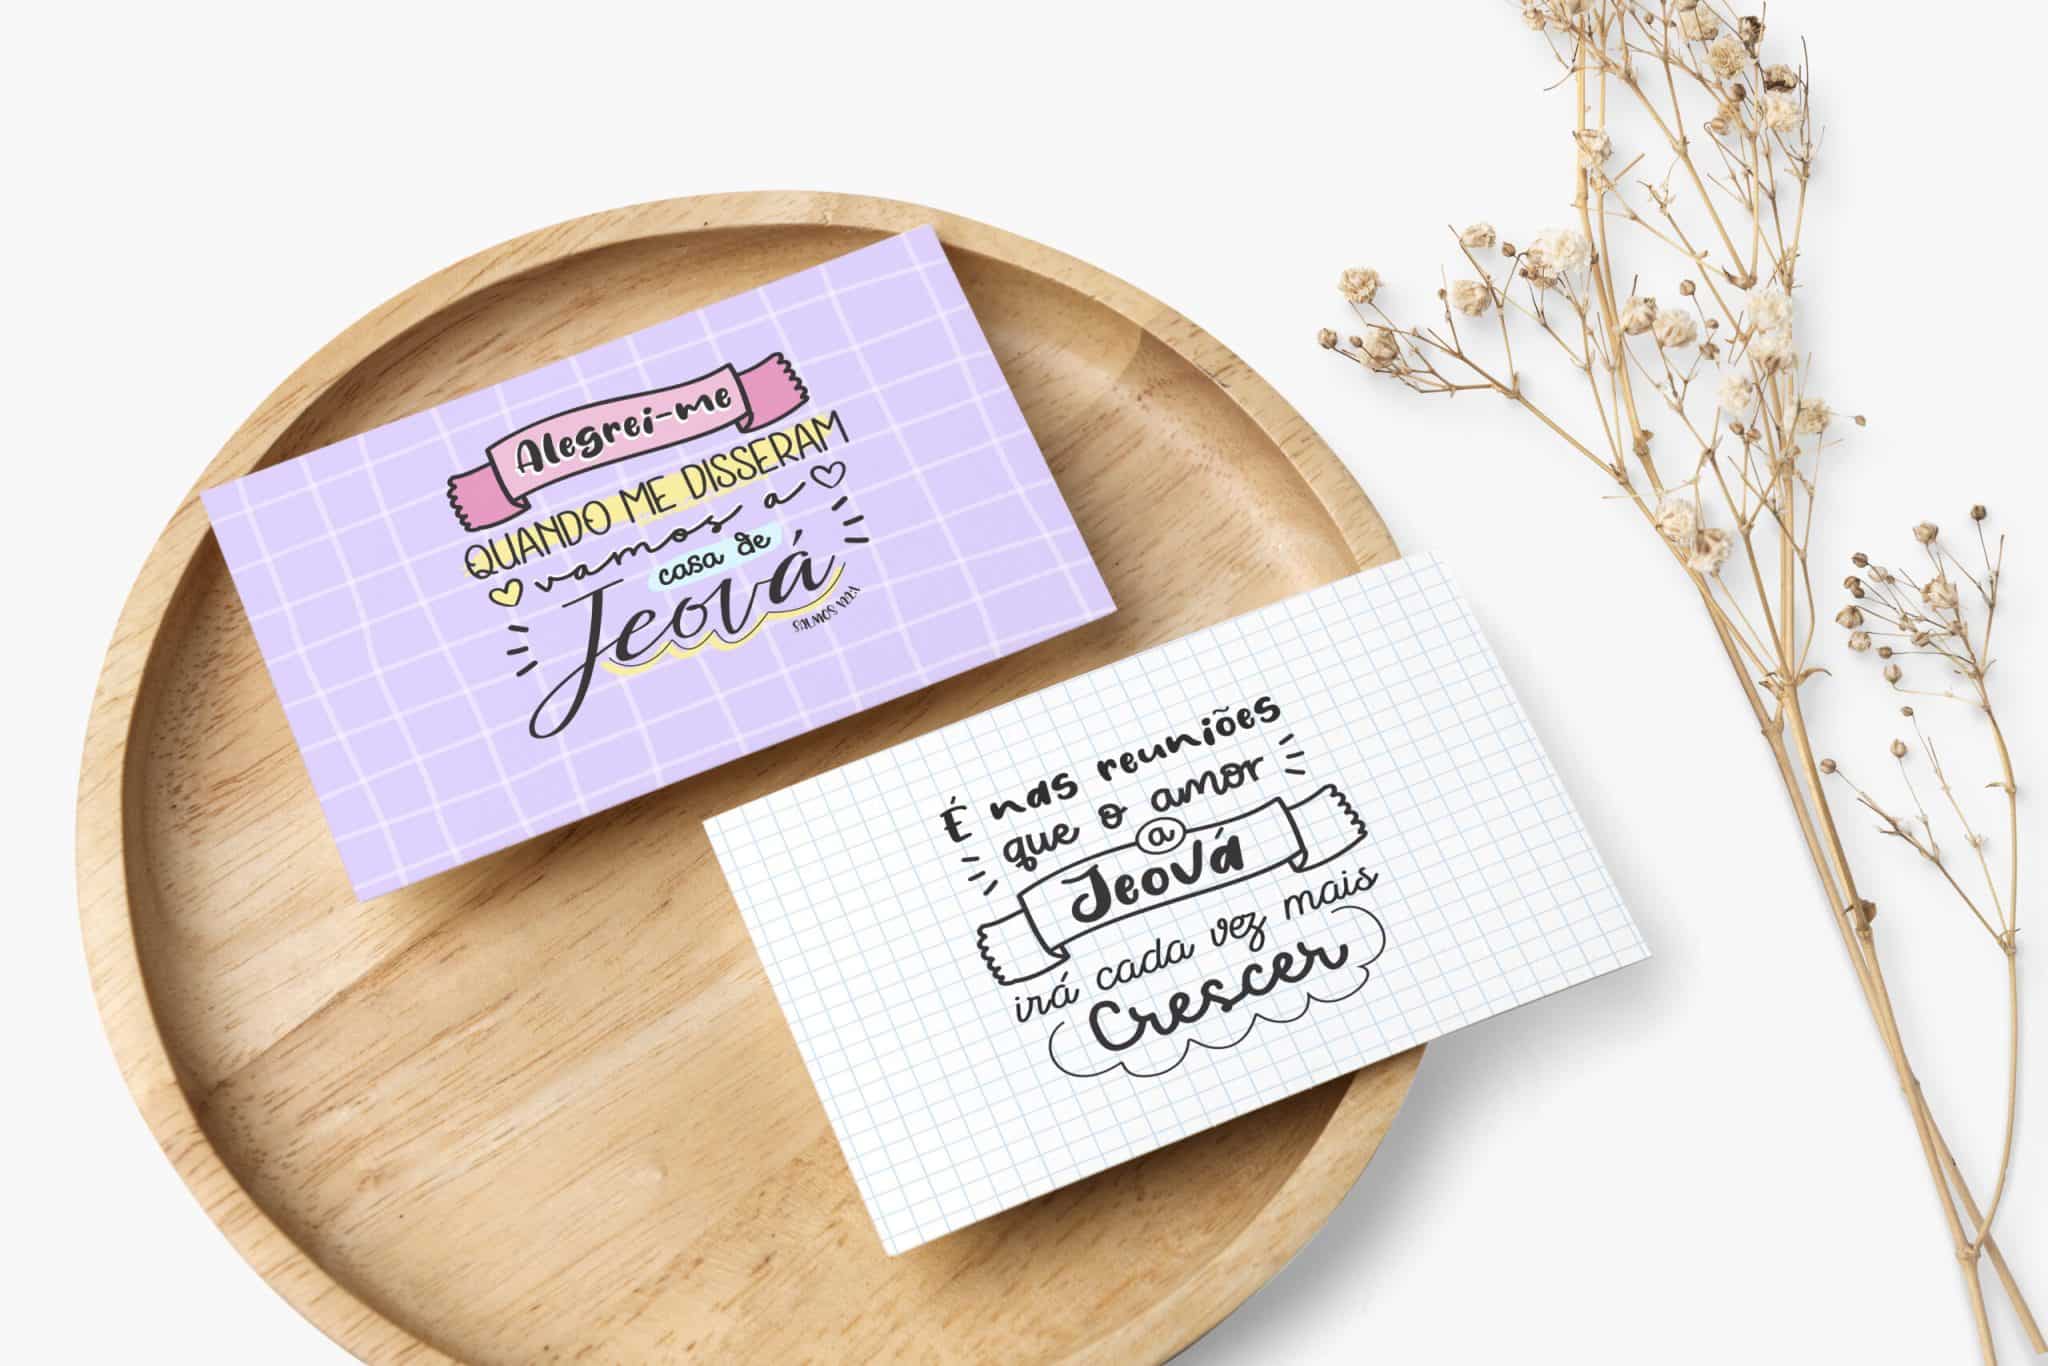 Alegrei-me
QUANDO ME DISSERAM
vamos a
casa de
Jeová
É nas reuniões
que o amor
a
Jeová
irá cada vez mais
Crescer